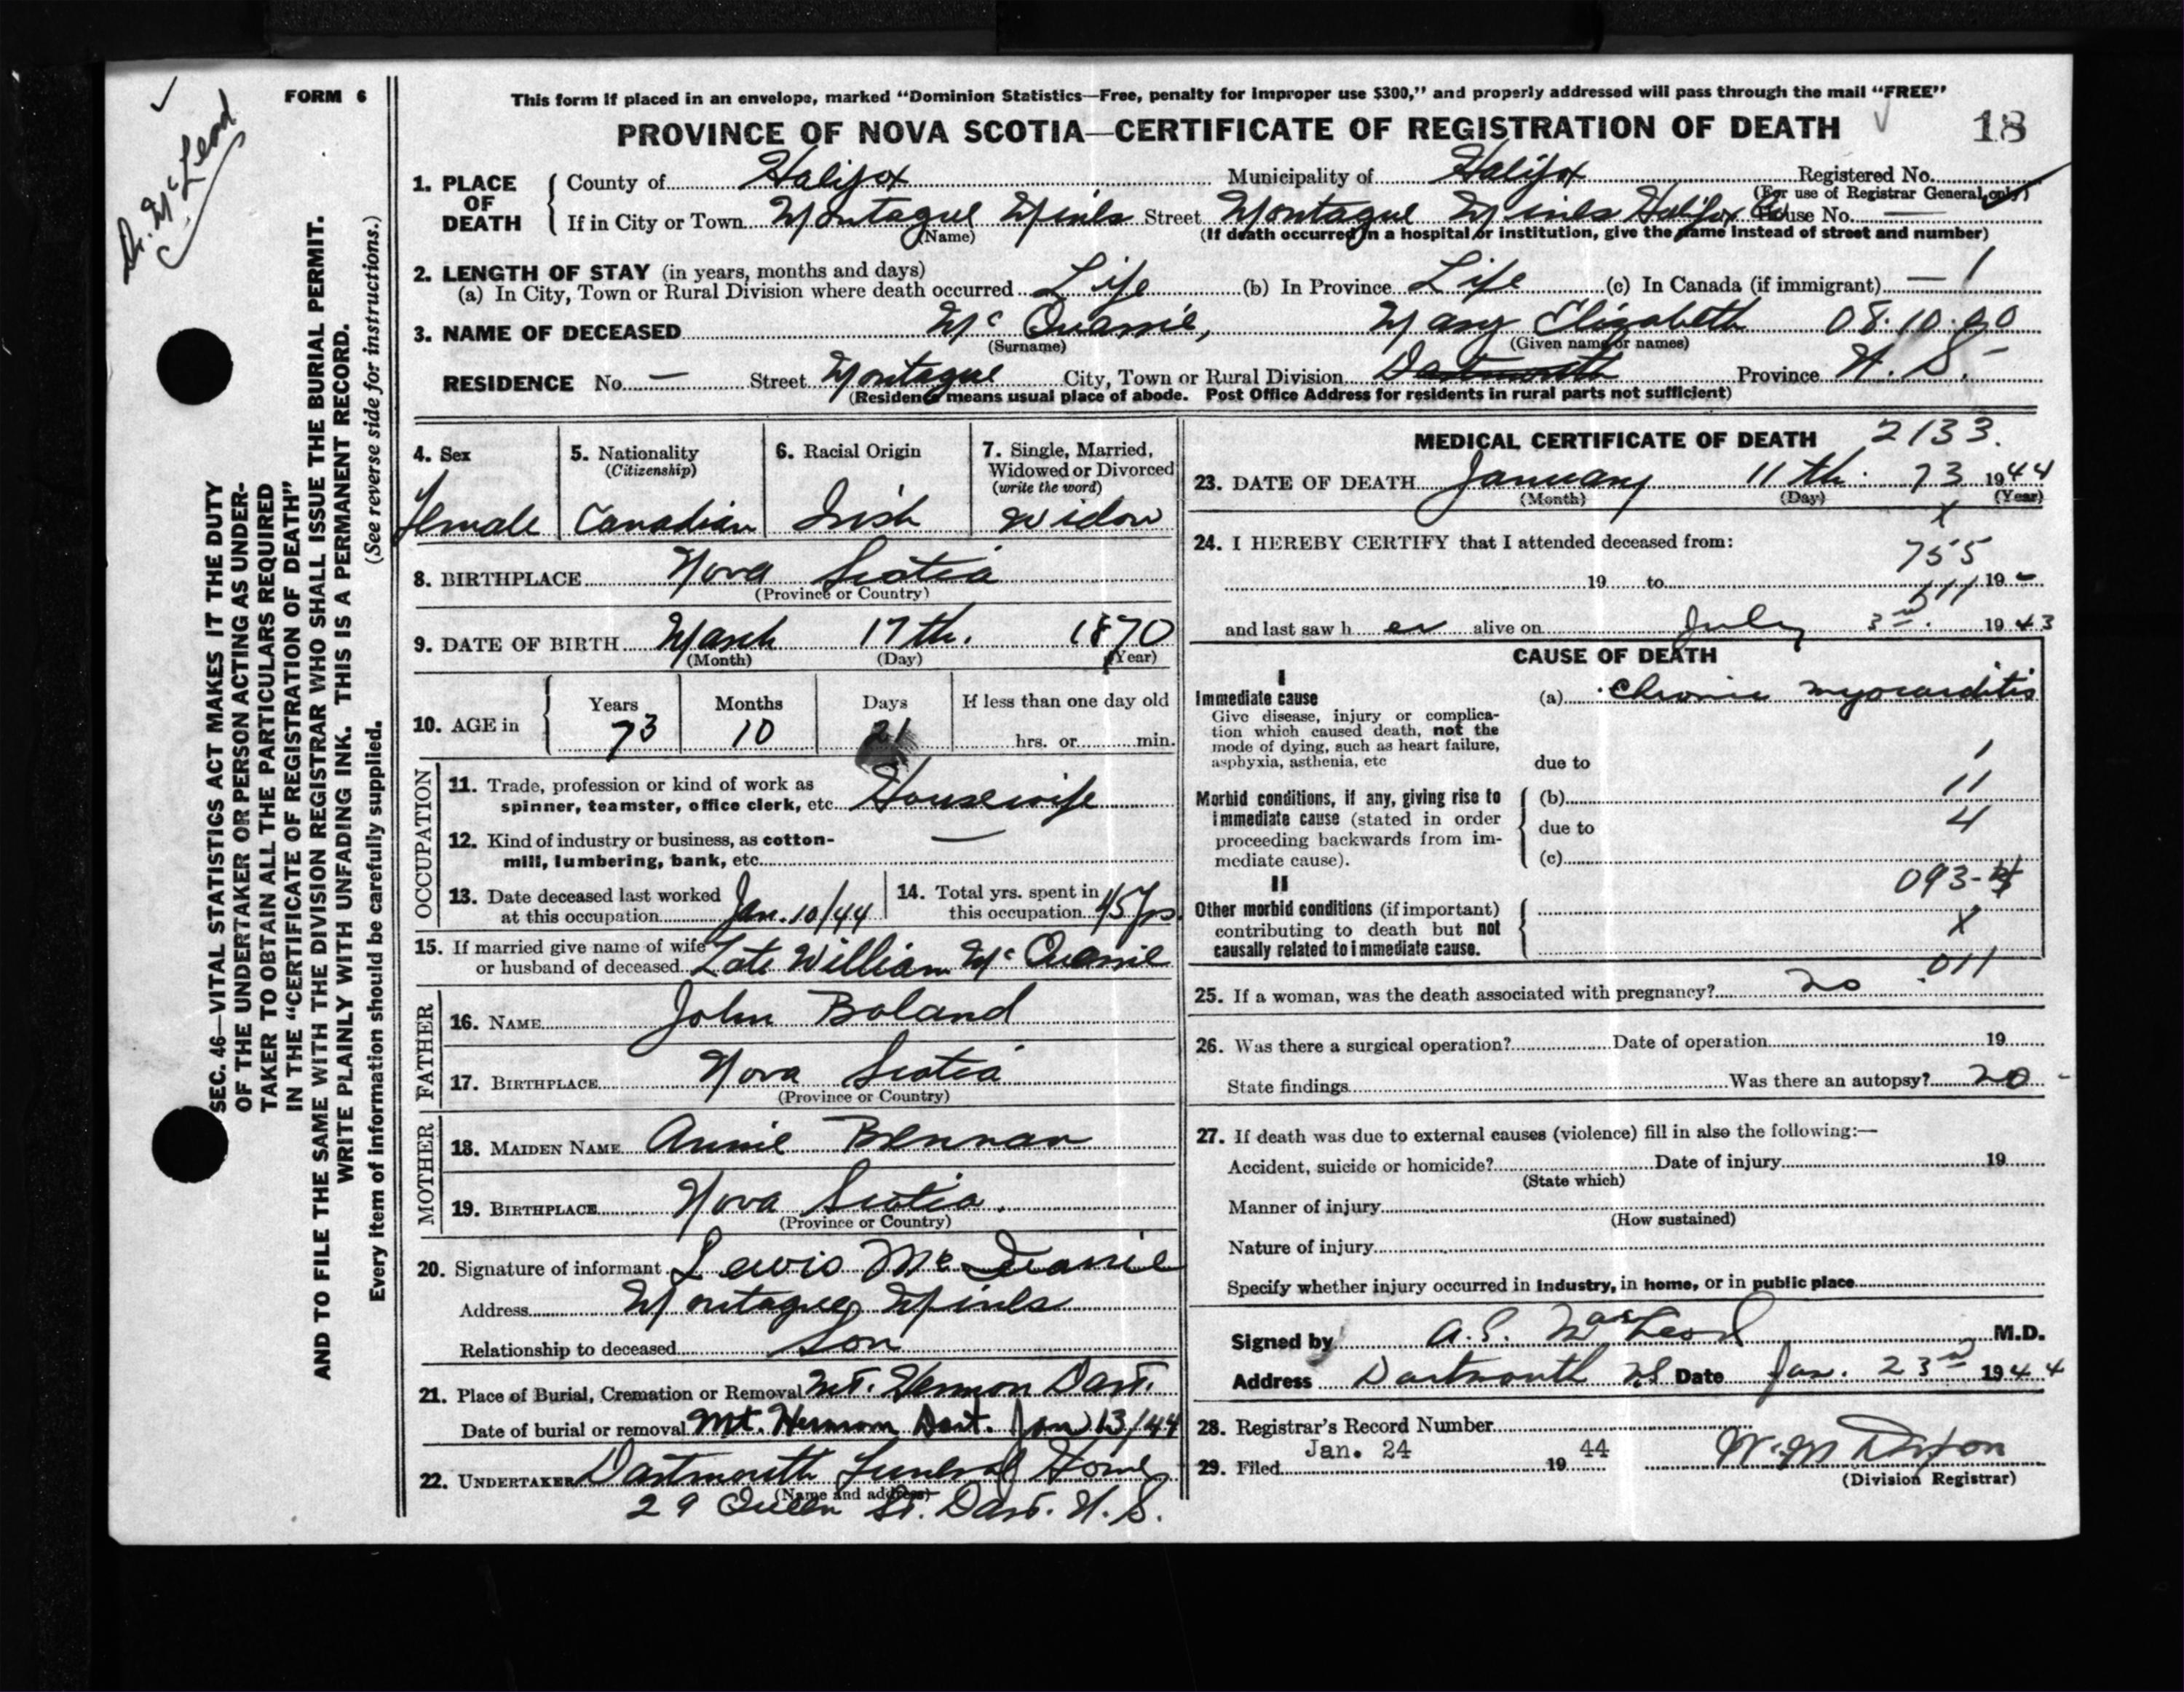 Dr. McLeod
FORM 6
SEC. 46—VITAL STATISTICS ACT MAKES IT THE DUTY
OF THE UNDERTAKER OR PERSON ACTING AS UNDER-
TAKER TO OBTAIN ALL THE PARTICULARS REQUIRED
IN THE "CERTIFICATE OF REGISTRATION OF DEATH"
AND TO FILE THE SAME WITH THE DIVISION REGISTRAR WHO SHALL ISSUE THE BURIAL PERMIT.
WRITE PLAINLY WITH UNFADING INK. THIS IS A PERMANENT RECORD.
Every item of information should be carefully supplied. (See reverse side for instructions.)
This form if placed in an envelope, marked "Dominion Statistics—Free, penalty for improper use $300," and properly addressed will pass through the mail "FREE"
PROVINCE OF NOVA SCOTIA—CERTIFICATE OF REGISTRATION OF DEATH 18
1. PLACE OF DEATH County of Halifax Municipality of Halifax Registered No.
(For use of Registrar General only)
If in City or Town Montague Mines Street Montague Mines Halifax Co House No. —
(Name) (If death occurred in a hospital or institution, give the name instead of street and number)
2. LENGTH OF STAY (in years, months and days)
(a) In City, Town or Rural Division where death occurred Life (b) In Province Life (c) In Canada (if immigrant) — 1
3. NAME OF DECEASED McQuarrie, Mary Elizabeth 08.10.00
(Surname) (Given name or names)
RESIDENCE No. — Street Montague City, Town or Rural Division Dartmouth Province N. S. -
(Residence means usual place of abode. Post Office Address for residents in rural parts not sufficient)
4. Sex
female
5. Nationality
(Citizenship)
Canadian
6. Racial Origin
Irish
7. Single, Married,
Widowed or Divorced
(write the word)
Widow
8. BIRTHPLACE Nova Scotia
(Province or Country)
9. DATE OF BIRTH March 17th. 1870
(Month) (Day) (Year)
10. AGE in Years Months Days If less than one day old
73 10 21 hrs. or min.
OCCUPATION
11. Trade, profession or kind of work as
spinner, teamster, office clerk, etc. Housewife
12. Kind of industry or business, as cotton-
mill, lumbering, bank, etc. —
13. Date deceased last worked
at this occupation Jan. 10/44
14. Total yrs. spent in
this occupation 45 yrs.
15. If married give name of wife
or husband of deceased Late William McQuarrie
FATHER
16. NAME John Boland
17. BIRTHPLACE Nova Scotia
(Province or Country)
MOTHER
18. MAIDEN NAME Annie Brennan
19. BIRTHPLACE Nova Scotia.
(Province or Country)
20. Signature of informant Lewis McQuarrie
Address Montague Mines
Relationship to deceased Son
21. Place of Burial, Cremation or Removal Mt. Hermon Dart.
Date of burial or removal Mt. Hermon Dart. Jan 13/44
22. UNDERTAKER Dartmouth Funeral Home
(Name and address)
29 Queen St. Dart. N. S.
MEDICAL CERTIFICATE OF DEATH 2133.
23. DATE OF DEATH January 11th. 73 1944
(Month) (Day) (Year)
x
24. I HEREBY CERTIFY that I attended deceased from:
755
19 to 19 -
111
and last saw h er alive on July 3rd. 1943
CAUSE OF DEATH
I
Immediate cause (a) Chronic myocarditis
Give disease, injury or complica-
tion which caused death, not the
mode of dying, such as heart failure,
asphyxia, asthenia, etc
due to 1
Morbid conditions, if any, giving rise to
immediate cause (stated in order
proceeding backwards from im-
mediate cause).
(b) 11
due to 4
(c)
093-
II
Other morbid conditions (if important)
contributing to death but not
causally related to immediate cause.
X
011
25. If a woman, was the death associated with pregnancy? no
26. Was there a surgical operation? Date of operation 19
State findings Was there an autopsy? no -
27. If death was due to external causes (violence) fill in also the following:—
Accident, suicide or homicide? Date of injury 19
(State which)
Manner of injury
(How sustained)
Nature of injury
Specify whether injury occurred in industry, in home, or in public place
Signed by A.S. MacLeod M.D.
Address Dartmouth NS Date Jan. 23rd 1944
28. Registrar's Record Number
29. Filed Jan. 24 19 44
(Division Registrar)